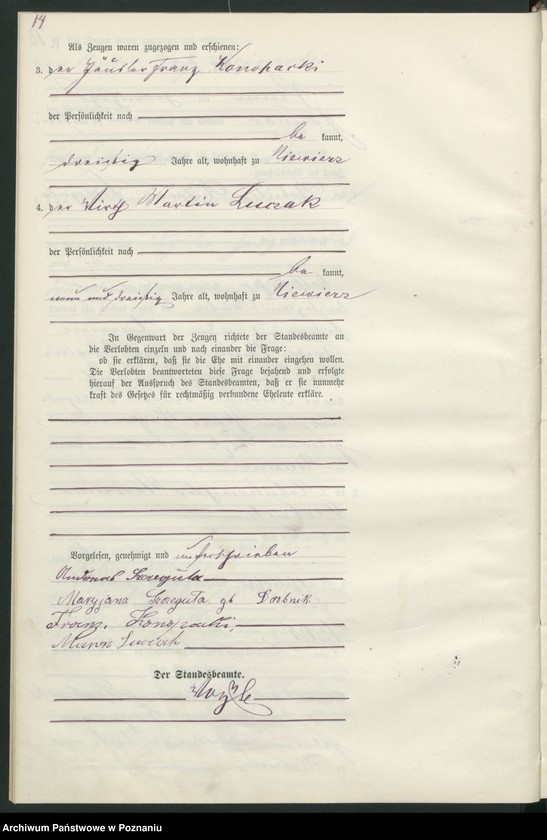 14
Als Zeugen waren zugezogen und erschienen:
3. der Häusler Franz Konopacki
der Persönlichkeit nach
be kannt,
dreissig Jahre alt, wohnhaft zu Niewierz
4. der Wirth Martin Luczak
der Persönlichkeit nach
be kannt,
neun und dreissig Jahre alt, wohnhaft zu Niewierz
In Gegenwart der Zeugen richtete der Standesbeamte an
die Verlobten einzeln und nach einander die Frage:
ob sie erklären, daß sie die Ehe mit einander eingehen wollen.
Die Verlobten beantworteten diese Frage bejahend und erfolgte
hierauf der Ausspruch des Standesbeamten, daß er sie nunmehr
kraft des Gesetzes für rechtmäßig verbundene Eheleute erkläre.
Vorgelesen, genehmigt und unterschrieben
Szegula
Maryjana gb
Franz Konopacki
Der Standesbeamte.
Archiwum Państwowe w Poznaniu